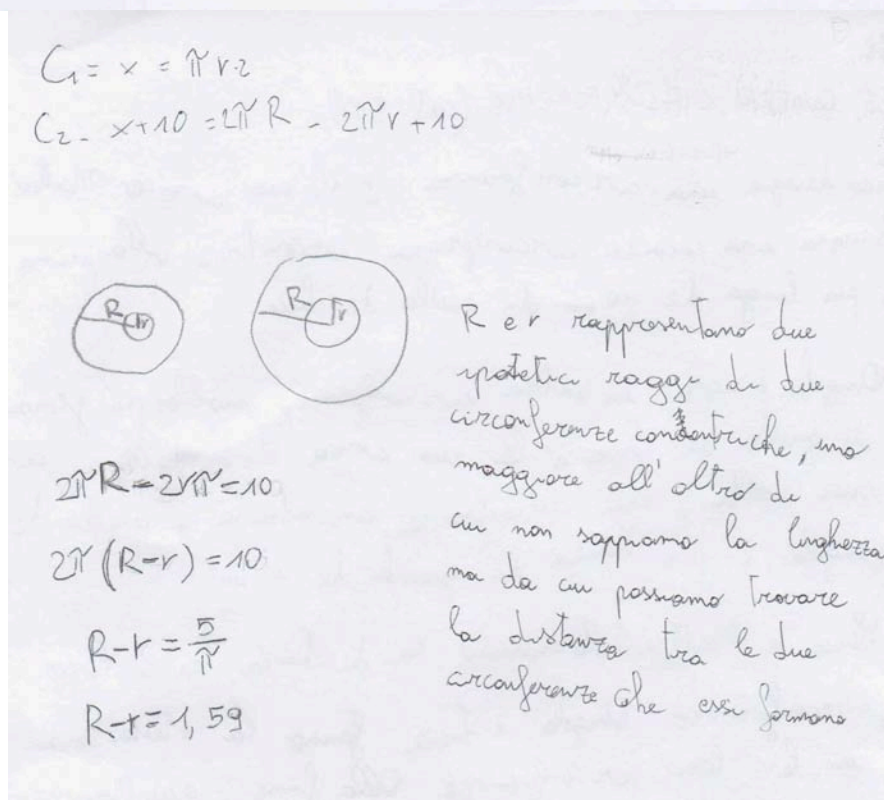 C1 = x = π r·2
C2 = x+10 = 2πR = 2πr+10
R
r
R
r
R e r rappresentano due
ipotetici raggi di due
circonferenze concentriche, uno
maggiore all'altro di
cui non sappiamo la lunghezza
ma da cui possiamo trovare
la distanza tra le due
circonferenze che essi formano
2πR-2rπ=10
2π(R-r)=10
R-r=5/π
R-r=1,59